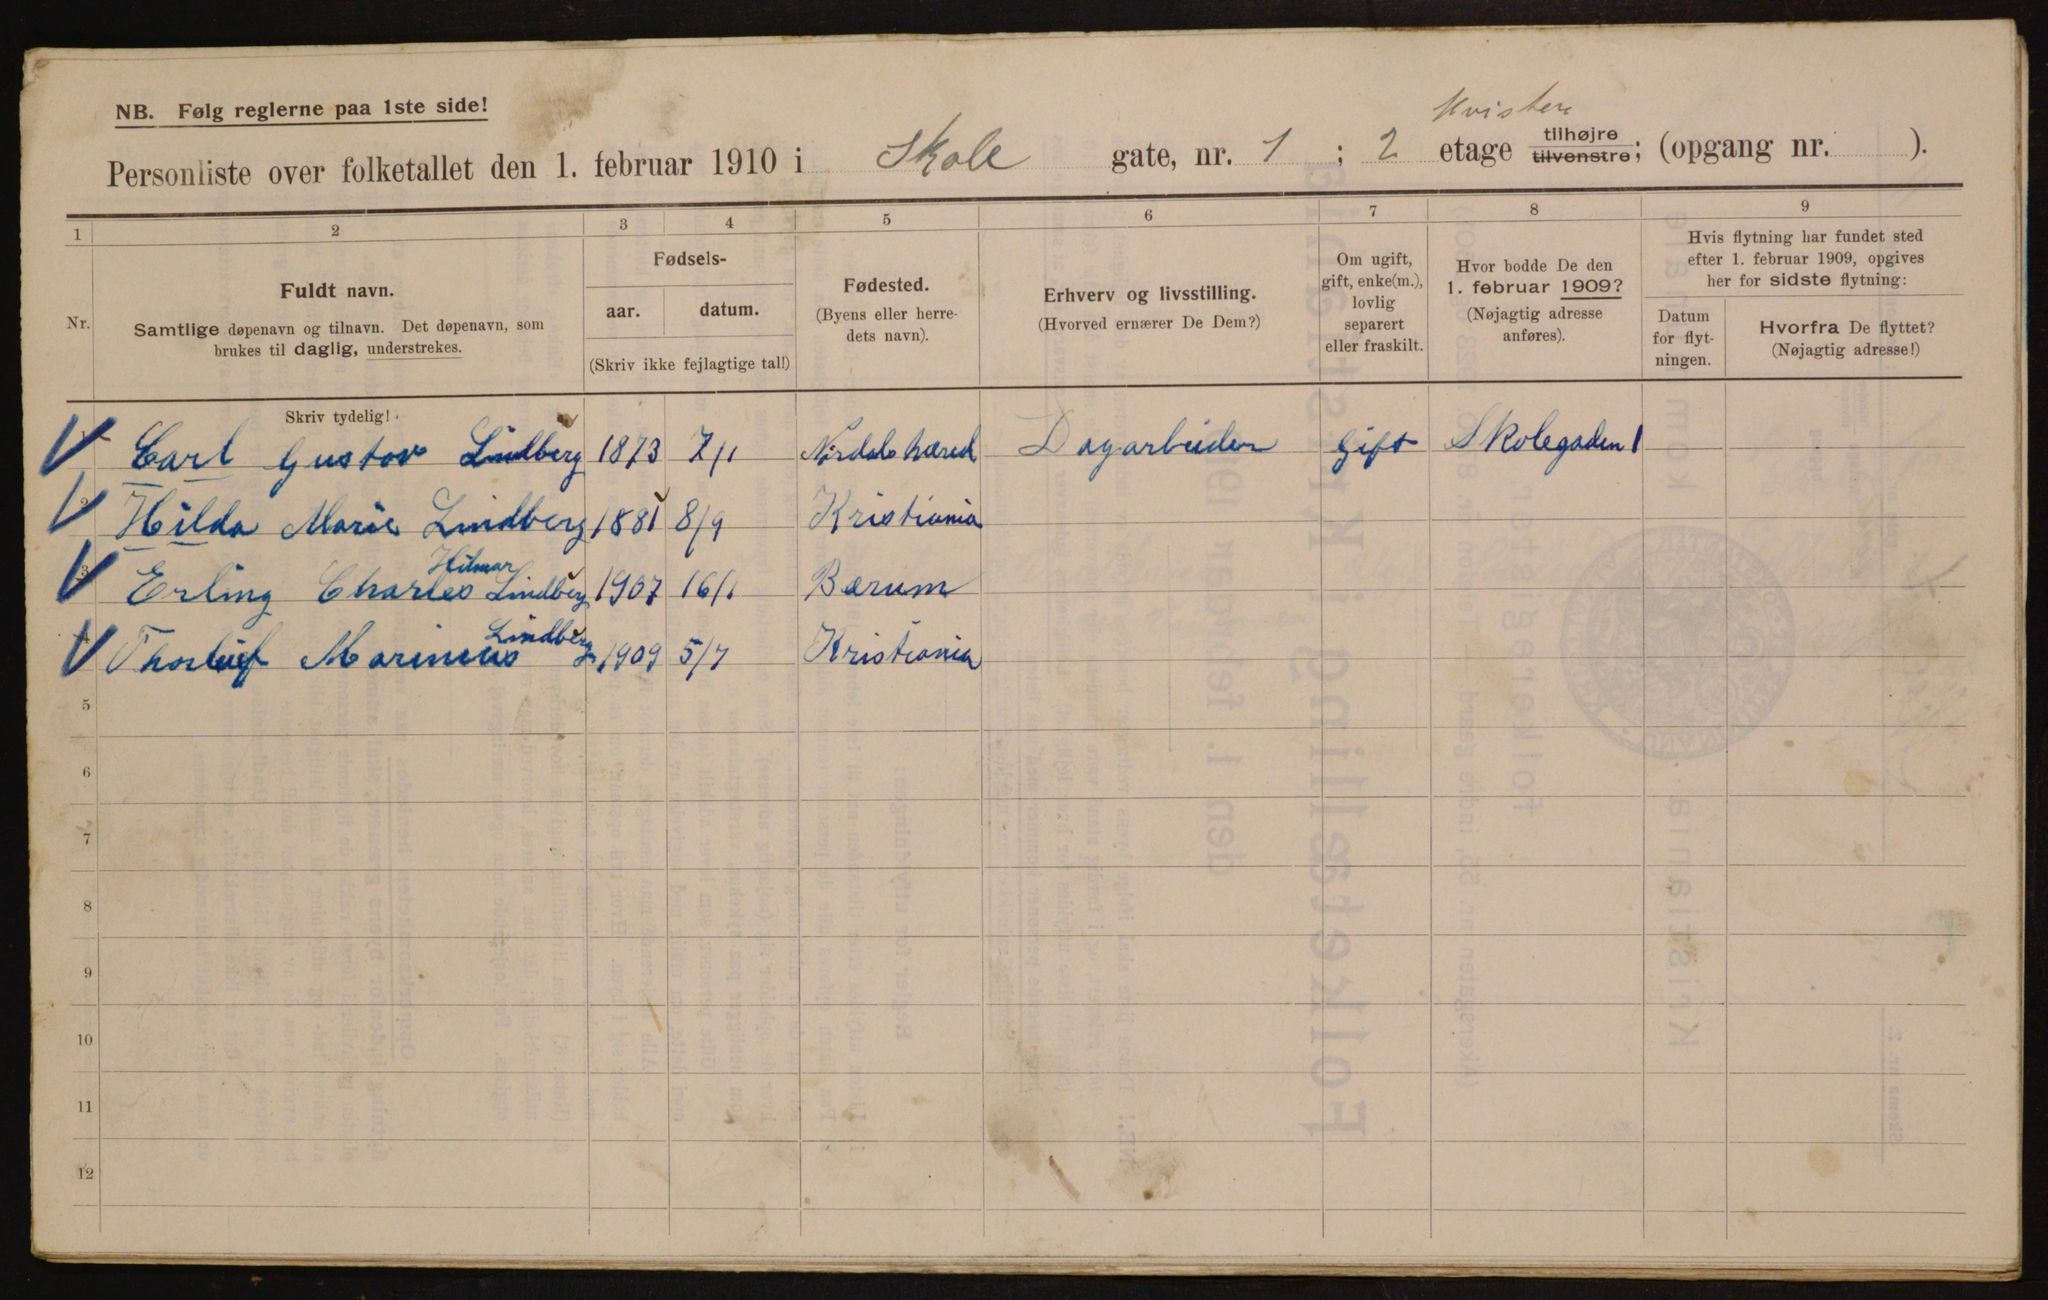 NB. Følg reglerne paa 1ste side!
Kvisten
Personliste over folketallet den 1. februar 1910 i Skole gate, nr. 1 ; 2 etage tilhøjre tilvenstre; (opgang nr. ).
1 2 3 4 5 6 7 8 9
Nr.
Fuldt navn.
Samtlige døpenavn og tilnavn. Det døpenavn, som
brukes til daglig, understrekes.
Fødsels-
aar. datum.
(Skriv ikke fejlagtige tal!)
Fødested.
(Byens eller herre-
dets navn).
Erhverv og livsstilling.
(Hvorved ernærer De Dem?)
Om ugift,
gift, enke(m.),
lovlig
separert
eller fraskilt.
Hvor bodde De den
1. februar 1909?
(Nøjagtig adresse
anføres).
Hvis flytning har fundet sted
efter 1. februar 1909, opgives
her for sidste flytning:
Datum
for flyt-
ningen.
Hvorfra De flyttet?
(Nøjagtig adresse!)
Skriv tydelig!
1 Carl Gustav Lindberg 1873 7/1 Dagarbeider Gift Skolegaden 1
2 Hilda Marie Lindberg 1881 8/9 Kristiania
Hilmar
3 Erling Charles Lindberg 1907 16/1 Bærum
Lindberg
4 Thorleif Marinius 1909 5/7 Kristiania
5
6
7
8
9
10
11
12